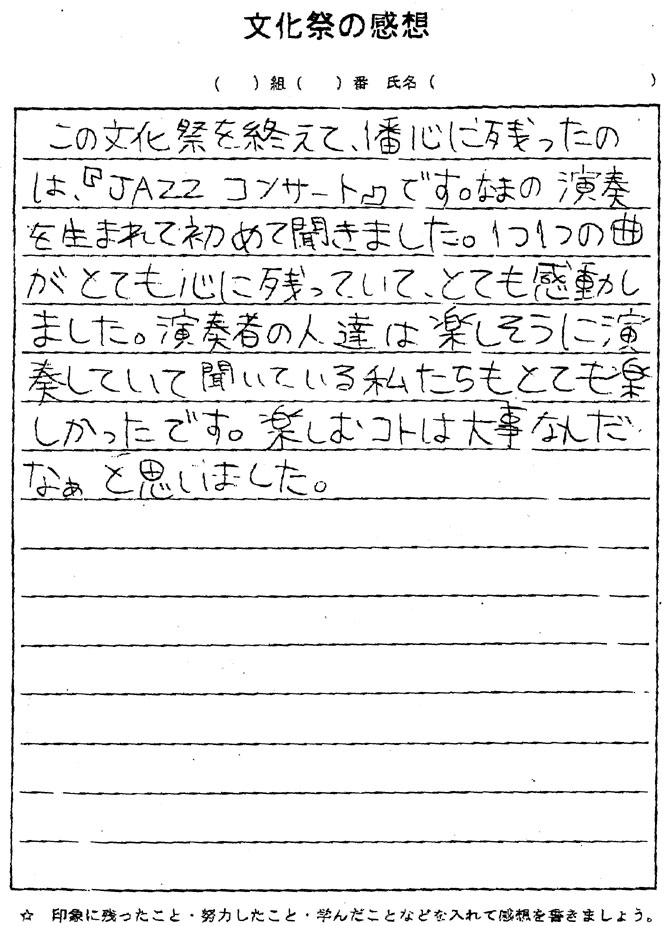 文化祭の感想
(　)組(　)番 氏名(　)
この文化祭を終えて、1番心に残ったの
は、『JAZZ コンサート』です。なまの演奏
を生まれて初めて聞きました。1つ1つの曲
がとても心に残っていて、とても感動し
ました。演奏者の人達は楽しそうに演
奏していて聞いている私たちもとても楽
しかったです。楽しむコトは大事なんだ
なぁと思いました。
☆ 印象に残ったこと・努力したこと・学んだことなどを入れて感想を書きましょう。